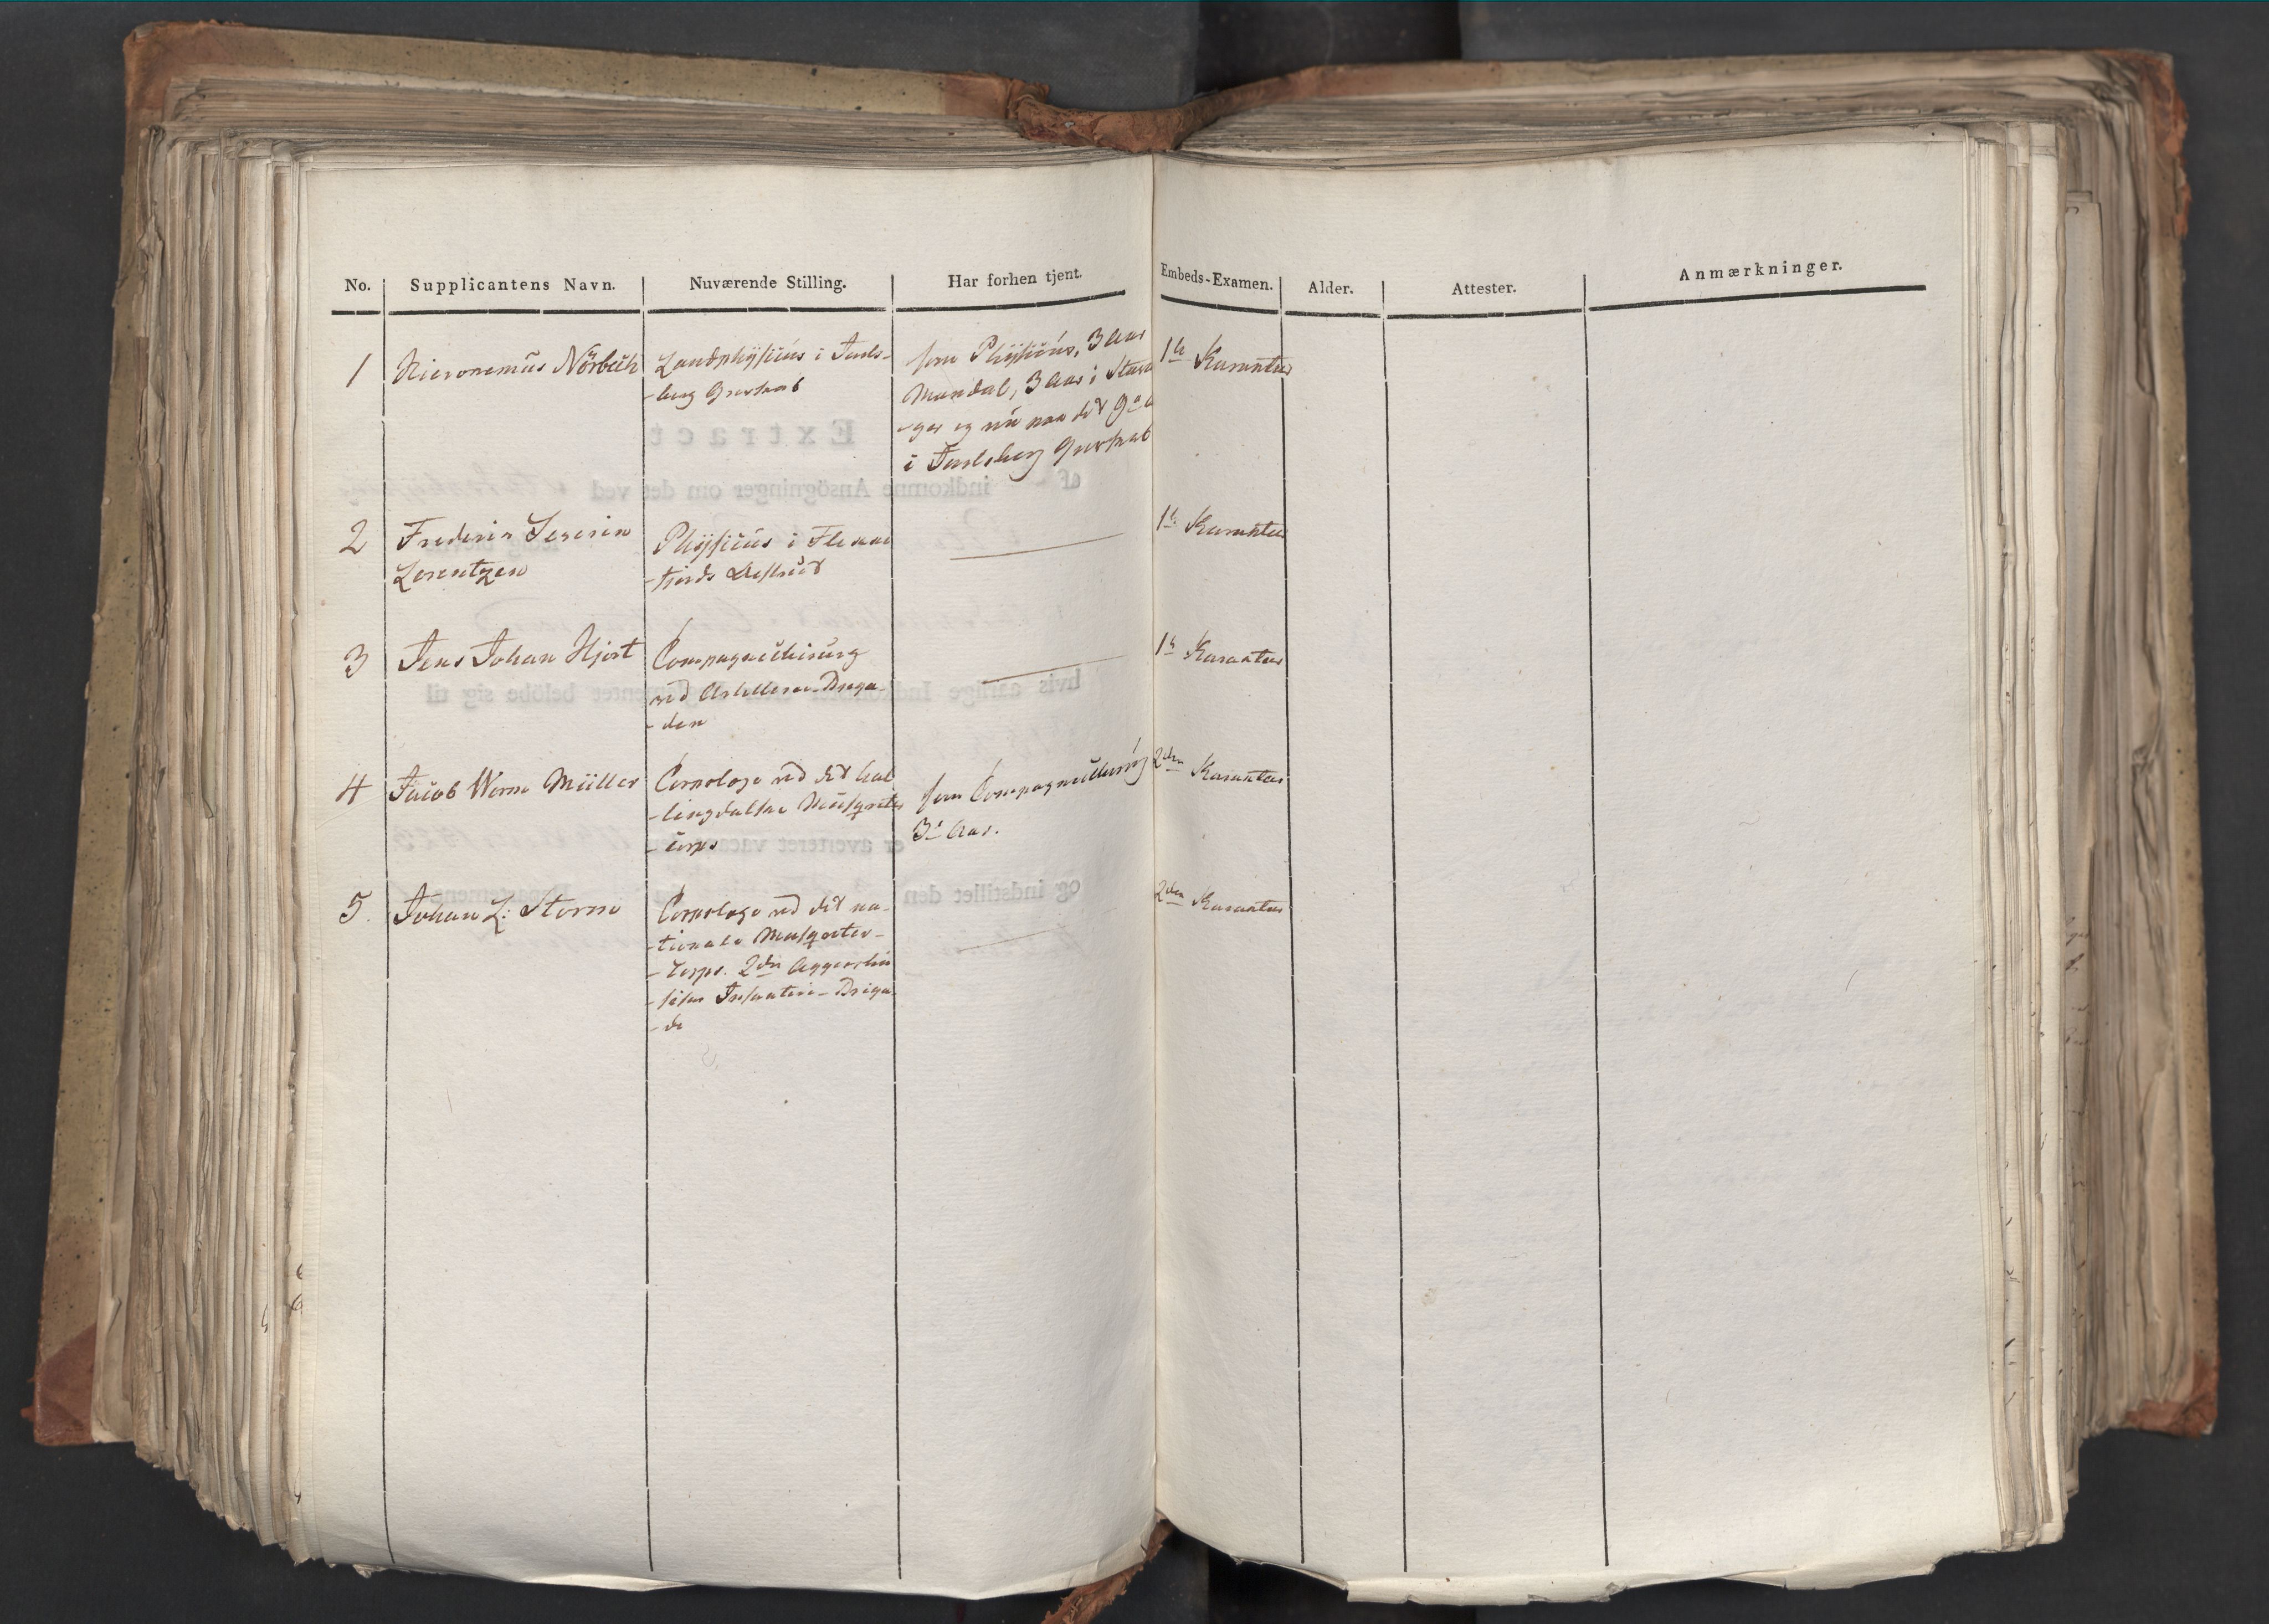 No. Supplicantens Navn. Nuværende Stilling. Har forhen tjent. Embeds-Examen. Alder. Attester. Anmærkninger.
1 Hieronemus Nörbech
Landphysicus i Jarls-
-berg Grevskab
som Physicus, 3 Aar
Mandal, 3 Aar i Stava
-ger og nu paa det 9de
i Jarlsberg Grevskab
1ste Karakter
2 Frederik Severin
Lorentzen
Physicus i Flekke
-fjords District
1ste Karakter
3 Jens Johan Hjort
Compagniechirurg
ved Artillerie-Briga-
-den
1ste Karakter
4 Jacob Worm Müller
Corpslæge ved det Hal
-lingdalske Musqueteer
-Corps
som Compagniechirurg
3 Aar.
2den Karakter
5. Johan L: Storm
Corpslæge ved det na-
-tionale Musqueteer-
-Corps. 2den Aggershu
-siske Infanterie-Briga
-de
2den Karakter
Extract
af indkomne Ansögninger om det ved
hvis aarlige belöbe sig til
er averteret vacant
og indstillet den